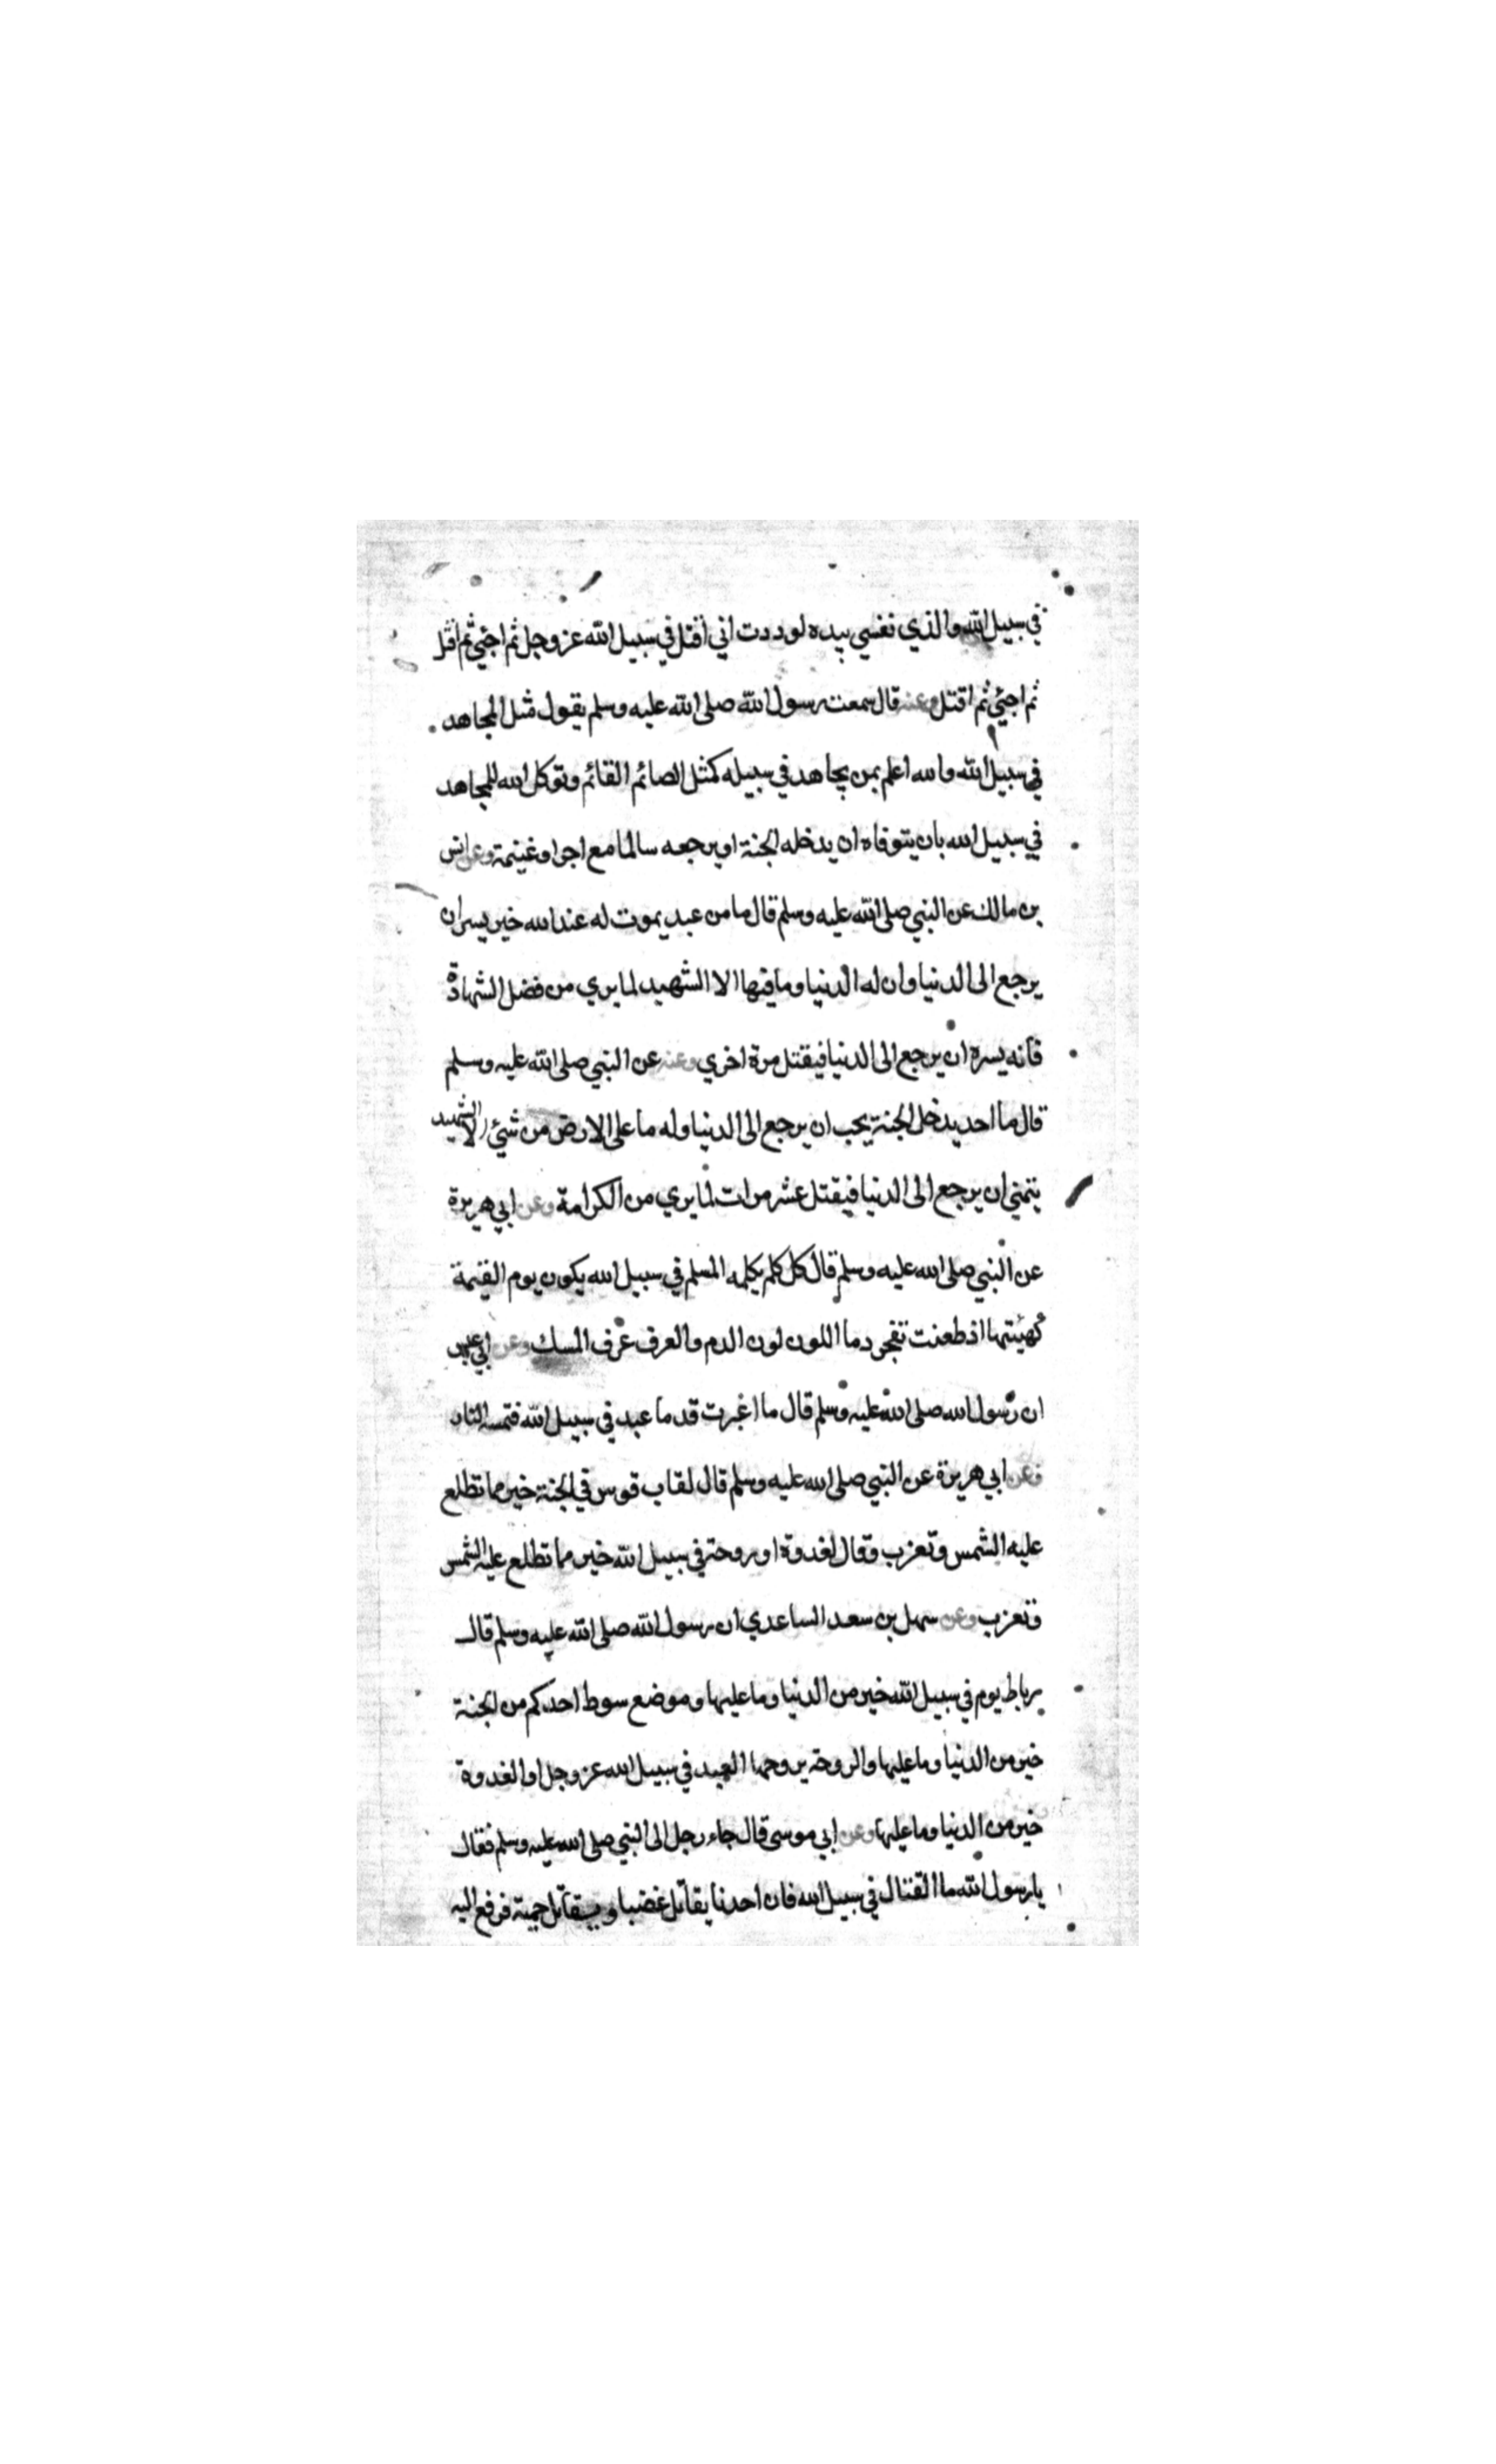 في سبيل الله والذي نفسي بيده لوددت اني اقتل في سبيل الله عز وجل ثم اجئي ثم اقتل
ثم اجئي ثم اقتل وعنه قال سمعت رسول الله صلى الله عليه وسلم يقول مثل المجاهد
في سبيل الله والله اعلم بمن يجاهد في سبيله كمثل الصائم القائم وتوكل الله للمجاهد
في سبيل الله بان يتوفاه ان يدخله الجنة او يرجعه سالما مع اجر او غنيمة وعن انس
بن مالك عن النبي صلى الله عليه وسلم قال ما من عبد يموت له عند الله خير يسر ان
يرجع الى الدنيا وان له الدنيا وما فيها الا الشهيد لما يري من فضل الشهادة
فانه يسره ان يرجع الى الدنيا فيقتل مرة اخري وعنه عن النبي صلى الله عليه وسلم
قال ما احد يدخل الجنة يحب ان يرجع الى الدنيا وله ما على الارض من شئي الا الشهيد
يتمني ان يرجع الى الدنيا فيقتل عشر مرات لما يري من الكرامة وعن ابي هريرة
عن النبي صلى الله عليه وسلم قال كل كلم يكلمه المسلم في سبيل الله يكون يوم القيمة
كهيئتها اذ طعنت تفجر دما اللون لون الدم والعرف عرف المسك وعن ابي عبس
ان رسول الله صلى الله عليه وسلم قال ما اغبرت قدما عبد في سبيل الله فتمسه النار
وعن ابي هريرة عن النبي صلى الله عليه وسلم قال لقاب قوس في الجنة خير مما تطلع
عليه الشمس وتغرب وقال لغدوة او روحة في سبيل الله خير مما تطلع عليه الشمس
وتغرب وعن سهل بن سعد الساعدي ان رسول الله صلى الله عليه وسلم قال
رباط يوم في سبيل الله خير من الدنيا وما عليها وموضع سوط احدكم من الجنة
خير من الدنيا وما عليها والروحة يروحها العبد في سبيل الله عز وجل او الغدوة
خير من الدنيا وما عليها وعن ابي موسى قال جاء رجل الى النبي صلى الله عليه وسلم فقال
يا رسول الله ما القتال في سبيل الله فان احدنا يقاتل غضبا ويقاتل حمية فرفع اليه